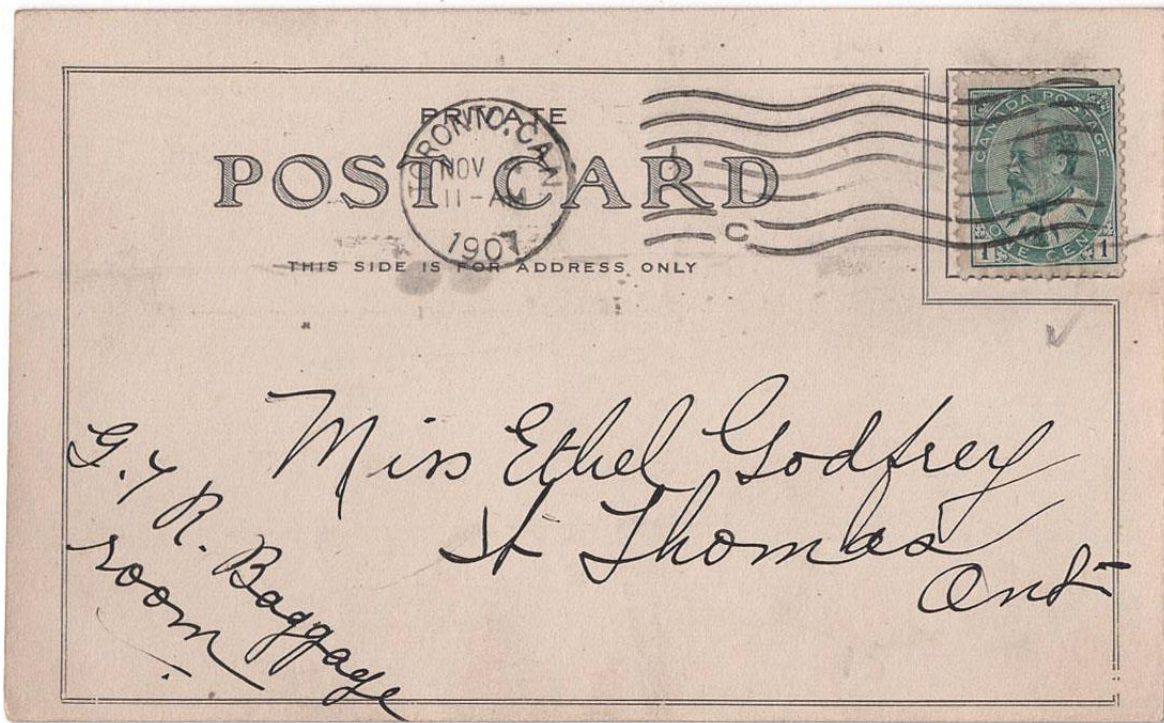 PRIVATE
POST CARD
THIS SIDE IS FOR ADDRESS ONLY
TORONTO, CAN
NOV
11-AM
1907
C
CANADA POSTAGE
ONE CENT
1 1
Miss Ethel Godfrey
St Thomas
Ont
G.T.R. Baggage
room